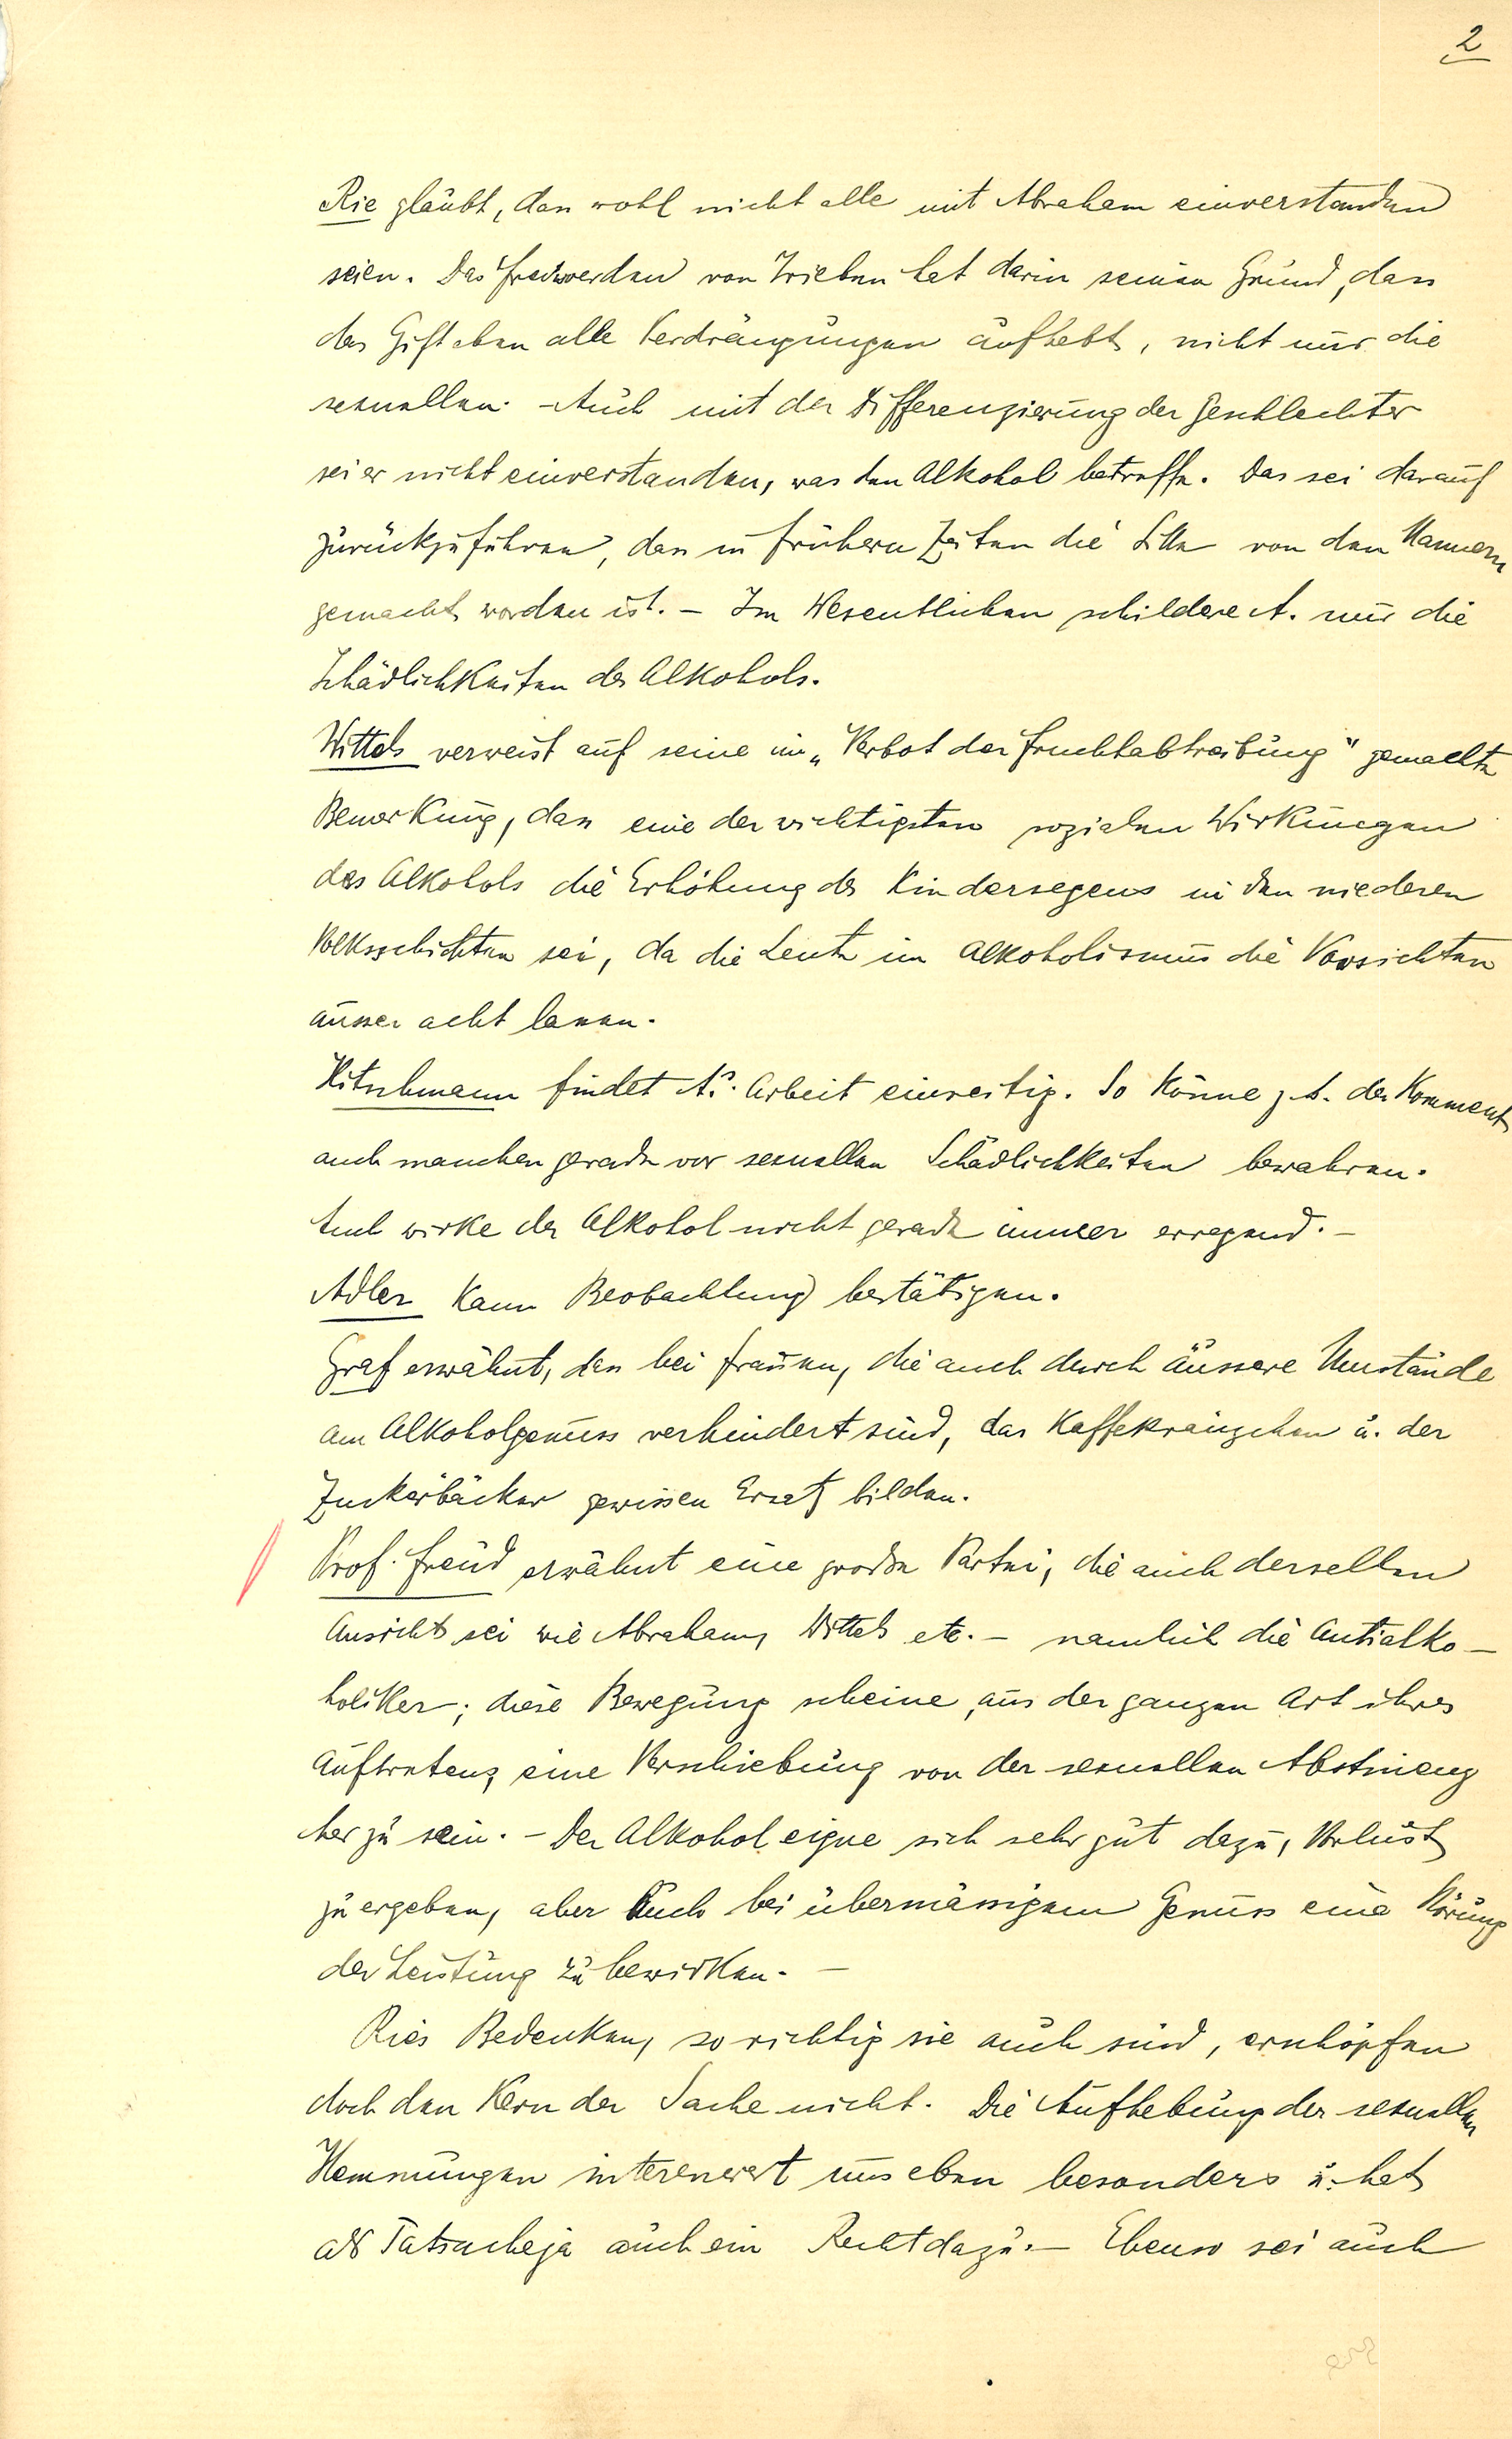 2
Rie glaubt, dass wohl nicht alle mit Abraham einverstanden
seien. Das Freiwerden von Trieben hat darin seinen Grund, dass
das Gift eben alle Verdrängungen aufhebt, nicht nur die
sexuellen. Auch mit der Differenzierung der Geschlechter
sei er nicht einverstanden, was den Alkohol betreffe. Das sei darauf
zurückzuführen, dass in frühern Zeiten die Sitte von den Männern
gemacht worden ist. – Im Wesentlichen schildere A. nur die
Schädlichkeiten des Alkohols.
Wittels verweist auf seine im „Verbot der Fruchtabtreibung" gemachte
Bemerkung, dass eine der wichtigsten sozialen Wirkungen
des Alkohols die Erhöhung des Kindersegens in den niederen
Volksschichten sei, da die Leute im Alkoholismus die Vorsichten
ausser acht lassen.
Hitschmann findet A's. Arbeit einseitig. So könne z. B. der Komment
auch manchen gerade vor sexuellen Schädlichkeiten bewahren.
Auch wirke der Alkohol nicht gerade immer erregend. –
Adler kann Beobachtung bestätigen.
Graf erwähnt, dass bei Frauen, die auch durch äussere Umstände
am Alkoholgenuss verhindert sind, das Kaffekränzchen u. der
Zuckerbäcker gewissen Ersatz bilden.
Prof. Freud erwähnt eine große Partei, die auch derselben
Ansicht sei wie Abraham, Wittels etc. – nämlich die Antialko–
holiker; diese Bewegung scheine, aus der ganzen Art ihres
Auftretens, eine Verschiebung von der sexuellen Abstinenz
her zu sein. – Der Alkohol eigne sich sehr gut dazu, Vorlust
zu ergeben, aber auch bei übermässigem Genuss eine Störung
der Leistung zu bewirken. –
Ries Bedenken, so richtig sie auch sind, erschöpfen
doch den Kern der Sache nicht. Die Aufhebung der sexuellen
Hemmungen interessiert uns eben besonders u. hat
als Tatsache ja auch ein Recht dazu. – Ebenso sei auch